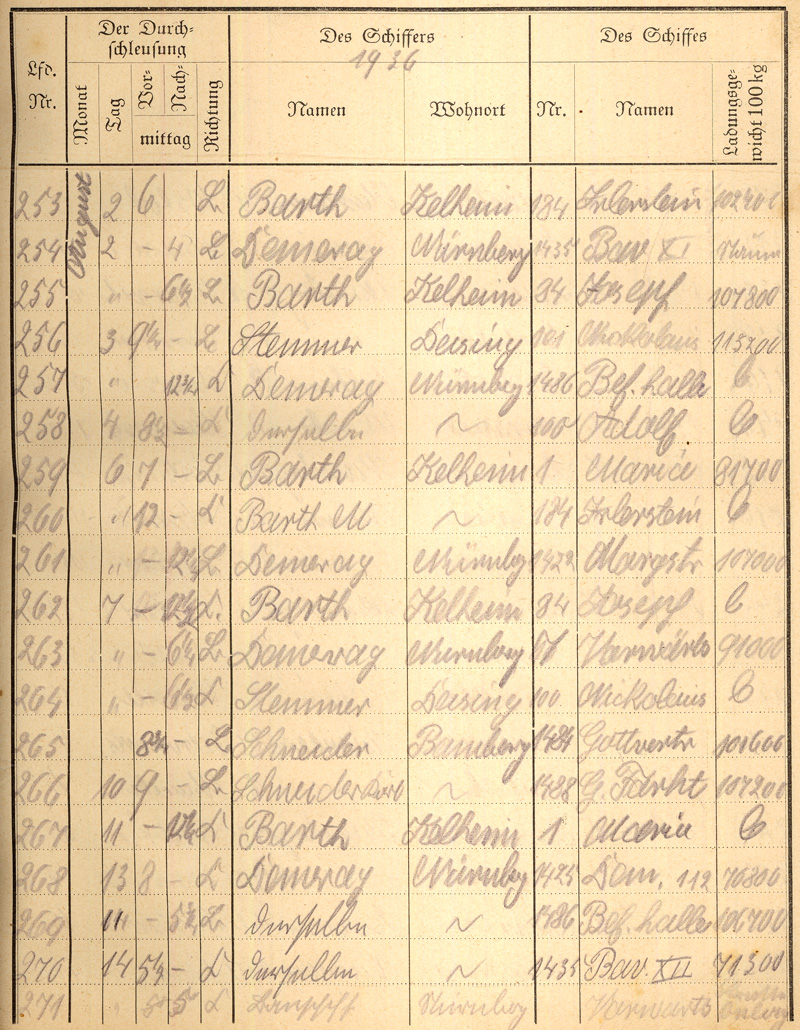 Lfd. Nr. Der Durchschleusung Des Schiffers Des Schiffes
1936
Monat Tag Vor- Nach- mittag Richtung Namen Wohnort Nr. Namen Ladungsgewicht 100 kg
August
253 2 6 L Barth Kelheim 184 Irlerstein
254 2 - 4 L Demerag Nürnberg 1435 Bav XI
255 " - 6½ L Barth Kelheim 84 Josef 107800
256 3 9½ - L Stemmer Deising 101 Nickolaus 115700
257 " 12¾ L Demerag Nürnberg 1486 Bef. halle
258 4 8½ - L derselbe ~ 100 Adolf
259 6 7 - L Barth Kelheim 1 Maria 81700
260 " 12 - L Barth M ~ 184 Irlerstein
261 " - 12½ L Demerag Nürnbg 1422 Margstr 107000
262 7 - 12½ L. Barth Kelheim 84 Josef
263 " - 6½ L Demerag Nürnberg Vorwärts 91000
264 " - 6½ L Stemmer Deising 100 Nickolaus
265 8¾ - L Schneider Bamberg 1424 Gottvertr 101600
266 10 9 - L Schneider Karl ~ 1428 107200
267 11 - 12½ L Barth Kelheim 1 Maria
268 13 8 - L Demerag Nürnbg 1425 Dem. 112 76800
269 " - 5¾ L derselbe ~ 1486 Bef. halle 106700
270 14 5½ - L derselbe ~ 1435 Bav. XII 71300
271 " 5 L Nürnberg Vorwärts